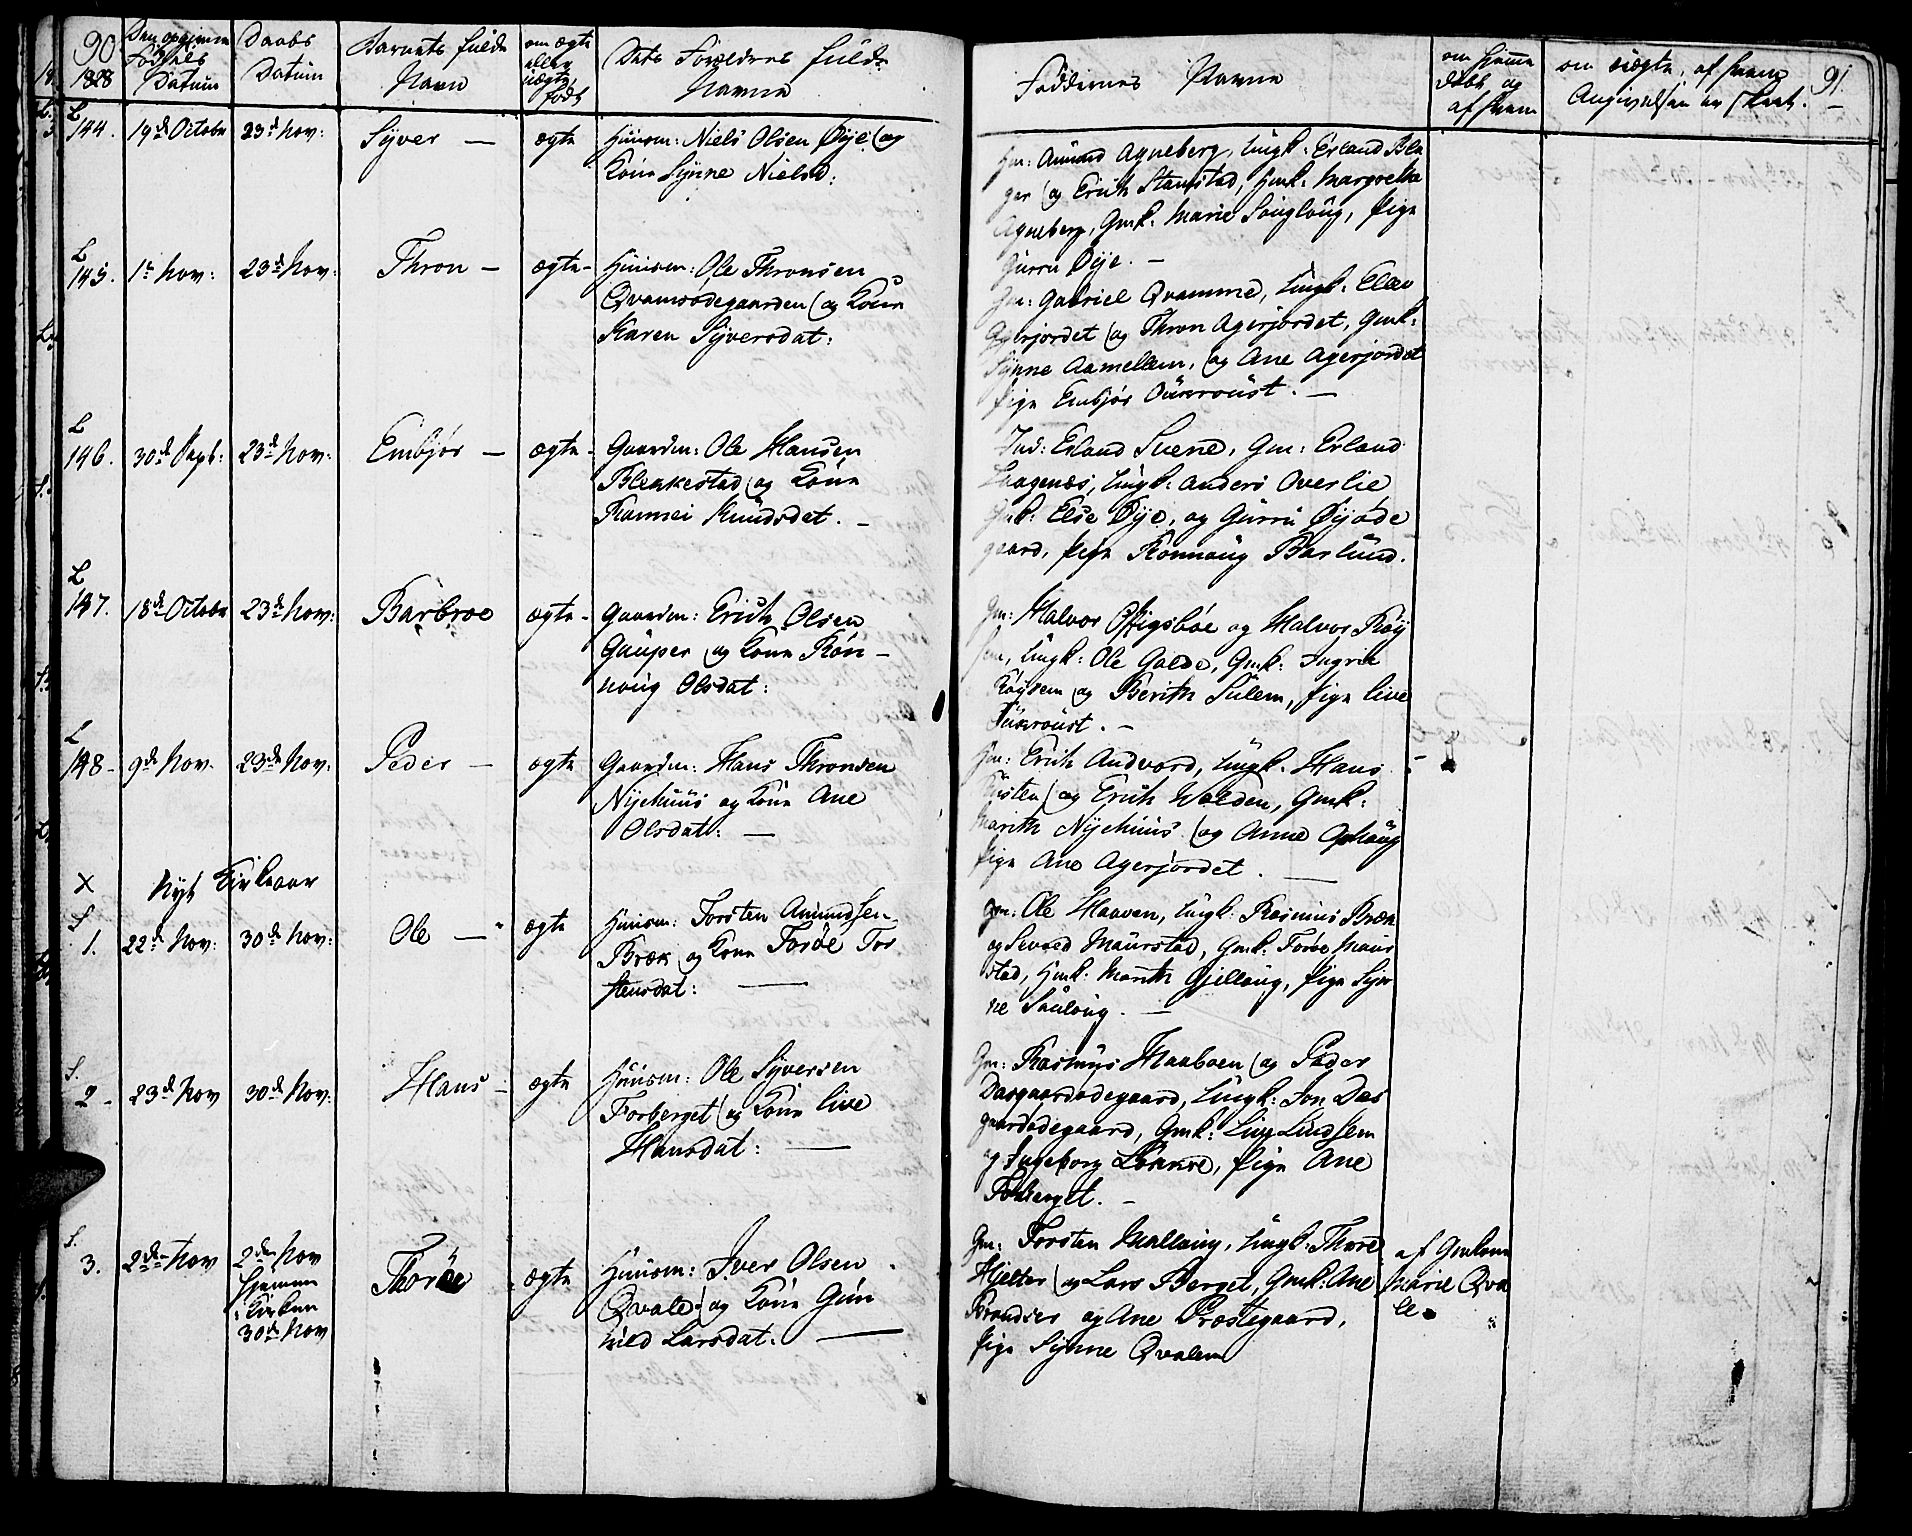 90
1828
Den opgivne
Fødsels
Datum
Daabs
Datum
Barnets fulde
Navn
om ægte
eller
uægte
født
Dets Forældres fulde
Navne
L
144. 19de Octobr 23de Nov: Syver — ægte Huusm: Niels Olsen Øye (og
Kone Synne Nielsd:
L
145. 1te Nov: 23de Nov: Thron — ægte - Huusm: Ole Thronsen
Qvamsødegaarden (og Kone
Karen Syversdat:
L
146. 30de Sept: 23de Nov: Embjør — ægte - Gaardm: Ole Hansen
Blekkestad (og Kone
Ronnei Knudsdat. -
L
147. 18de Octobr 23de Nov: Barbroe ægte - Gaardm: Erich Olsen
Gauper (og Kone Rön-
noug Olsdat:
L
148 - 9de Nov. 23de Nov: Peder — ægte Gaardm: Hans Thronsen
Nyehuus og Kone Ane
Olsdat: —
X Nyt Kirkeaar
S
1. 22de Nov: 30de Nov: Ole — ægte Huusm: Torsten Amundsen
Bræk og Kone Toröe Tor
stensdat: —
S.
2 - 23de Nov 30de Nov: Hans - ægte Huusm: Ole Syversen
Forberget (og Kone Live
Hansdat: —
S.
3. 2den Nov 2den Nov
hjemme
i Kirken
30de Nov
Thoröe ægte Huusm: Iver Olsen
Qvale (og Kone Gun
hild Larsdat: —
Faddernes Navne
om hjemme
døbt og
af hvem
om uægte, af hvem
Angivelsen er skeet.
91
Gm: Amund Agneberg, Ungk: Erland Bla
ger (og Erich Stamstad, Gmk: Margrethe
Agneberg, Gmk: Marie Sougloug, Pige
Gurru Øye. —
Gm: Gabriel Qvamme, Ungk: Ellev
Agerjordet (og Thron Agerjordet, Gmk:
Synne Aamellem, (og Ane Agerjordet
Pige Embjør —
Ind: Erland Svene, Gm: Erland
Ungk: Anders Overlie
Gmk: Else Øye, og Gurru Øyøde
gaard, Pige Rönnoug Barlund.
Gm: Halvor og Halvor Røy
sem, Ungk: Ole Galde, Gmk: Ingrid
Røysem (og Berith Sulem, Pige Live
—
Gm: Erich Andvord, Ungk. Hans
(og Erich Walden, Gmk:
Marith Nyehuus (og Anne Ophoug
Pige Ane Agerjordet. —
Gm: Ole Haaven, Ungk: Rasmus Bræk
og Maurstad, Gmk: Toröe Maur
stad, Gmk: Marith Gjelloug, Pige Syn
ne Souloug. —
Gm: Rasmus (og Peder
Dasgaardødegaard, Ungk: Jon Das
gaardødegaard, Gmk: Live Lindsem
og Ingeborg Løkkre, Pige Ane
Forberget. —
Gm: Torsten Ungk: Thore
Hjelter (og Lars Berget, Gmk: Ane
og Ane Præstegaard,
Pige Synne Qvalen
af Gmkone
Marie Qva
le